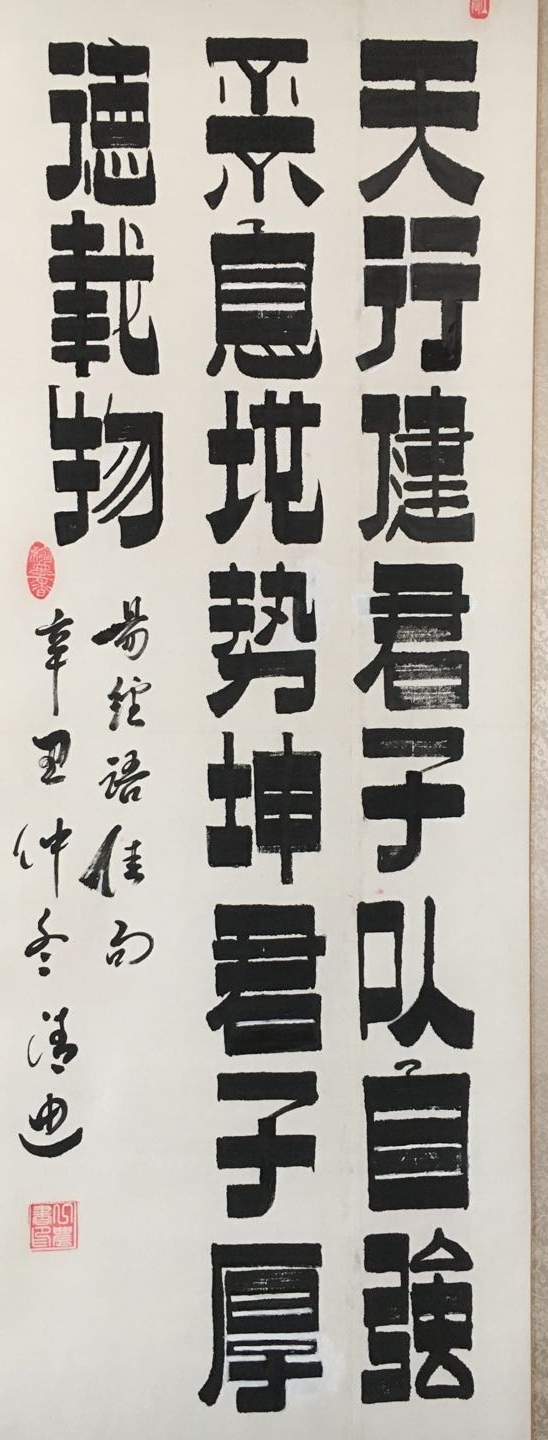 天行健君子以自強
不息地勢坤君子厚
德載物
易經語佳句
辛丑仲冬清迪